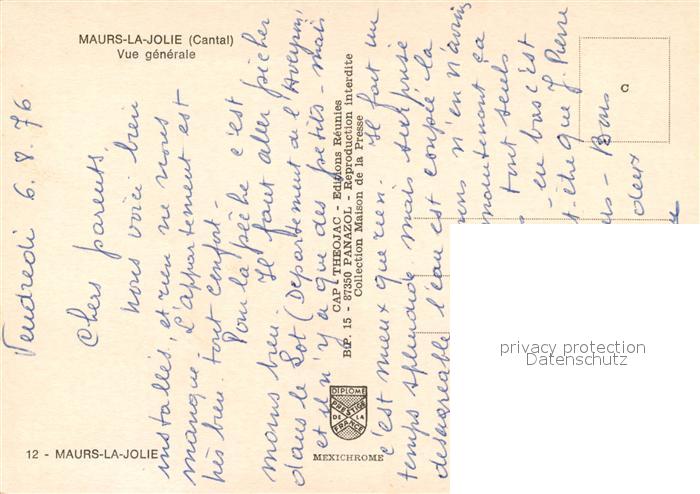 MAURS-LA-JOLIE (Cantal)
Vue générale
Vendredi 6.8.76
Chers parents,
nous voici bien
installés, et rien ne nous
manque. L'appartement est
très bien. tout confort -
Pour la pêche c'est
moins bien. Il faut aller pêcher
dans le Lot (Département de l'Aveyron)
et il n'y a que des petits - mais
c'est mieux que rien. Il fait un
temps splendide, mais surprise
désagréable l'eau est coupée la
nous n'en n'avons
maintenant ça
tout seuls
- en bas c'est
que J. Pierre
- Bons
deux
CAP - THEOJAC - Editions Réunies
B.P. 15 - 87350 PANAZOL - Reproduction interdite
Collection Maison de la Presse
DIPLOME
PRESTIGE
DE LA
FRANCE
MEXICHROME
12 - MAURS-LA-JOLIE
privacy protection
Datenschutz